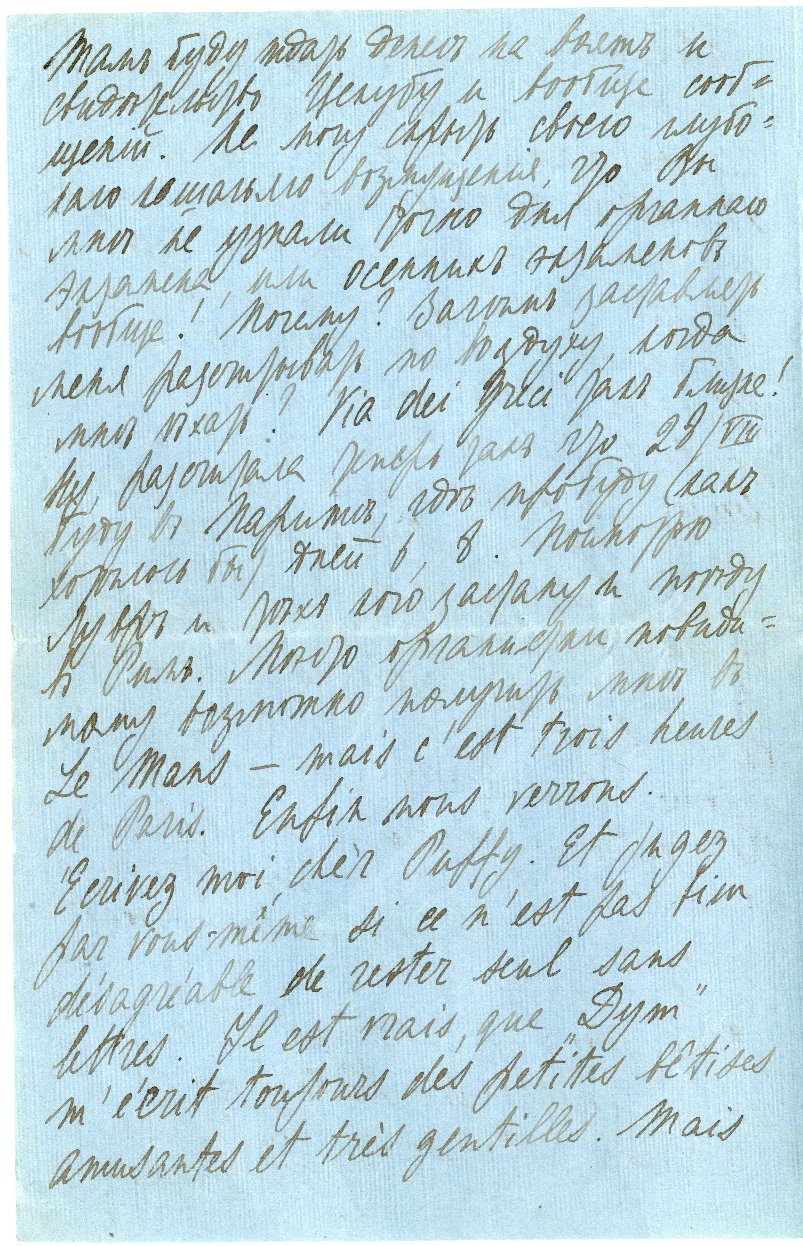 Тамъ буду ждать денегъ на билетъ и
свидѣтельство Цекубу и вообще сооб=
щеній. Не могу скрыть своего глубо=
каго возмущенія, что Вы
мнѣ не узнали точно дня органнаго
экзамена, или осеннихъ экзаменовъ
вообще! Почему? Зачѣмъ заставлять
меня разстраивать по воздуху, когда
мнѣ ѣхать? Via dei Greci такъ близко!
Ну, разсчитала теперь такъ что 28/VIII
буду въ Парижѣ, гдѣ пробуду (какъ
хотѣлось бы) дней 6, 8. Посмотрю
Лувръ и тѣхъ кого застану и поѣду
въ Римъ. Мѣсто органистки, повиди=
мому возможно получить мнѣ въ
Le Mans – mais c'est trois heures
de Paris. Enfin nous verrons.
Ecrivez moi, chèr Puffy. Et jugez
par vous-même si ce n'est pas bien
désagréable de rester seul sans
lettres. Il est vrais, que „Dym"
m'écrit toujours des petites bêtises
amusantes et très gentilles. Mais